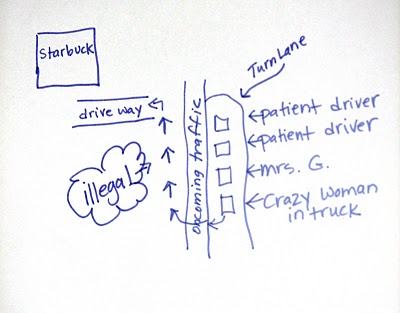 Starbuck
Turn Lane
drive way
upcoming traffic
patient driver
patient driver
mrs. G.
Crazy woman
in truck
illegal